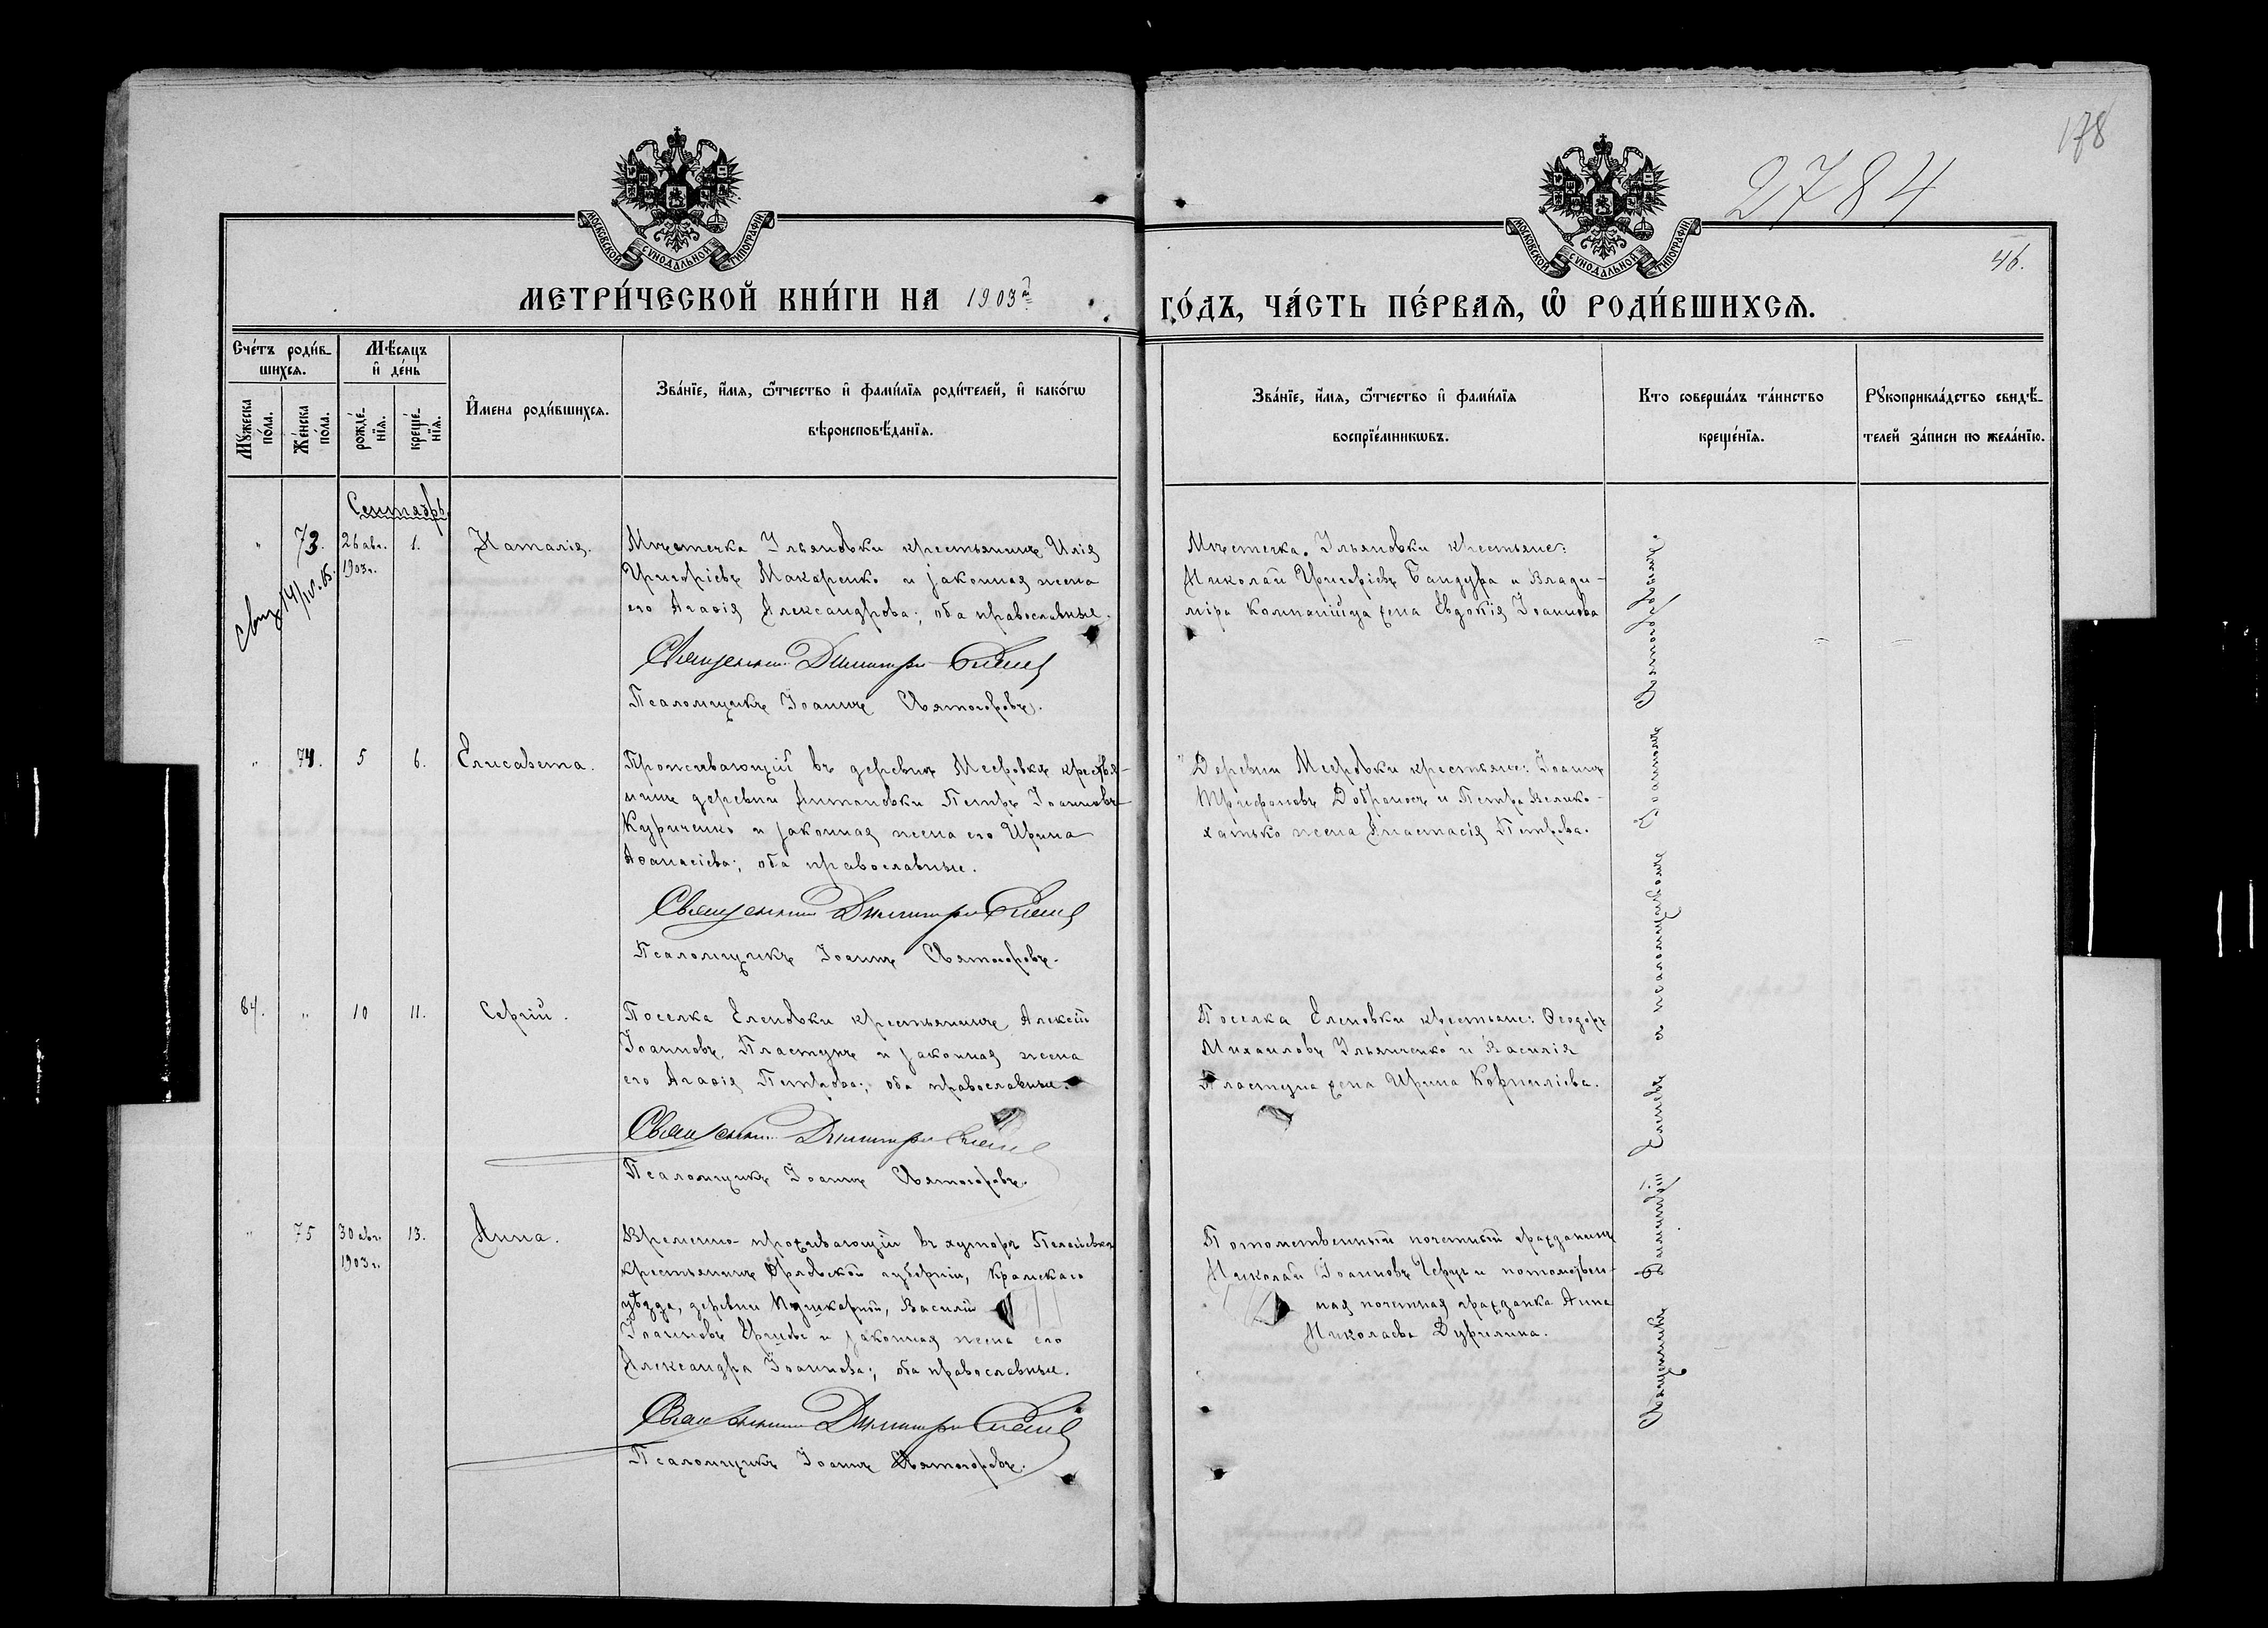 178
2784
46.
МОСКОВСКОЙ СУНОДАЛЬНОЙ ТИПОГРАФІИ
МОСКОВСКОЙ СУНОДАЛЬНОЙ ТИПОГРАФІИ
МЕТРИ́ЧЕСКОЙ КНИ́ГИ НА 1903й
ГО́ДЪ, ЧА́СТЬ ПЕ́РВАЯ, Ѡ РОДИ́ВШИХСЯ.
Сче́тъ роди́в-
шихся.
Мѣ́сяцъ
и҆ де́нь
Мꙋ́жеска
по́ла.
Же́нска
по́ла.
рожде́-
нїя.
креще́-
нїя.
И҆мена роди́вшихся.
Зва́нїе, и҆́мя, ѻ҆́тчество и҆ фами́лїя роди́телей, и҆ како́гѡ
вѣроисповѣ́данїя.
Зва́нїе, и҆́мя, ѻ҆́тчество и҆ фами́лїя
воспрїе́мникѡвъ.
Кто соверша́лъ та́инство
креще́нїя.
Рꙋкоприкла́дство свидѣ́-
телей за́писи по жела́нїю.
Сентябрь
" 73. 26 авг. 1903г. 1. Наталія.
Мѣстечка Ильяновки крестьянинъ Илія
Григоріевъ Макаренко и законная жена
его Агафія Александрова; оба православные.
Священникъ Димитрій
Псаломщикъ Іоаннъ Святогоровъ.
Мѣстечка Ильяновки крестьяне:
Николай Григоріевъ Бандура и Влади-
міра Компанійца жена Евдокія Іоаннова
" 74. 5 6. Елисавета.
Проживающій въ деревнѣ Мееровкѣ крестья-
нинъ деревни Антоновки Петръ Іоанновъ
Куриченко и законная жена его Ирина
Аѳанасіева; оба православные.
Священникъ Димитрій
Псаломщикъ Іоаннъ Святогоровъ.
Деревни Мееровки крестьяне: Іоаннъ
Трифоновъ Доброносъ и Петра Велико-
хатько жена Анастасія Петрова.
64. " 10 11. Сергій.
Поселка Еленовки крестьянинъ Алексій
Іоанновъ Пластунъ и законная жена
его Агафія Петрова; оба православные.
Священникъ Димитрій
Псаломщикъ Іоаннъ Святогоровъ.
Поселка Еленовки крестьяне: Ѳеодоръ
Михаиловъ Ильянченко и Василія
Пластуна жена Ирина Корниліева.
" 75 30 авг. 1903г. 13. Анна.
Временно-проживающій въ хуторѣ
крестьянинъ Орловской губерніи, Кромскаго
уѣзда, деревни Пушкарной, Василій
Іоанновъ Ершовъ и законная жена его
Александра Іоаннова; оба православные.
Священникъ Димитрій
Псаломщикъ Іоаннъ Святогоровъ.
Потомственный почетный гражданинъ
Николай Іоанновъ и потомствен-
ная почетная гражданка Анна
Николаева Дурилина.
Священникъ Димитрій и псаломщикомъ Іоанномъ Святогоровымъ.